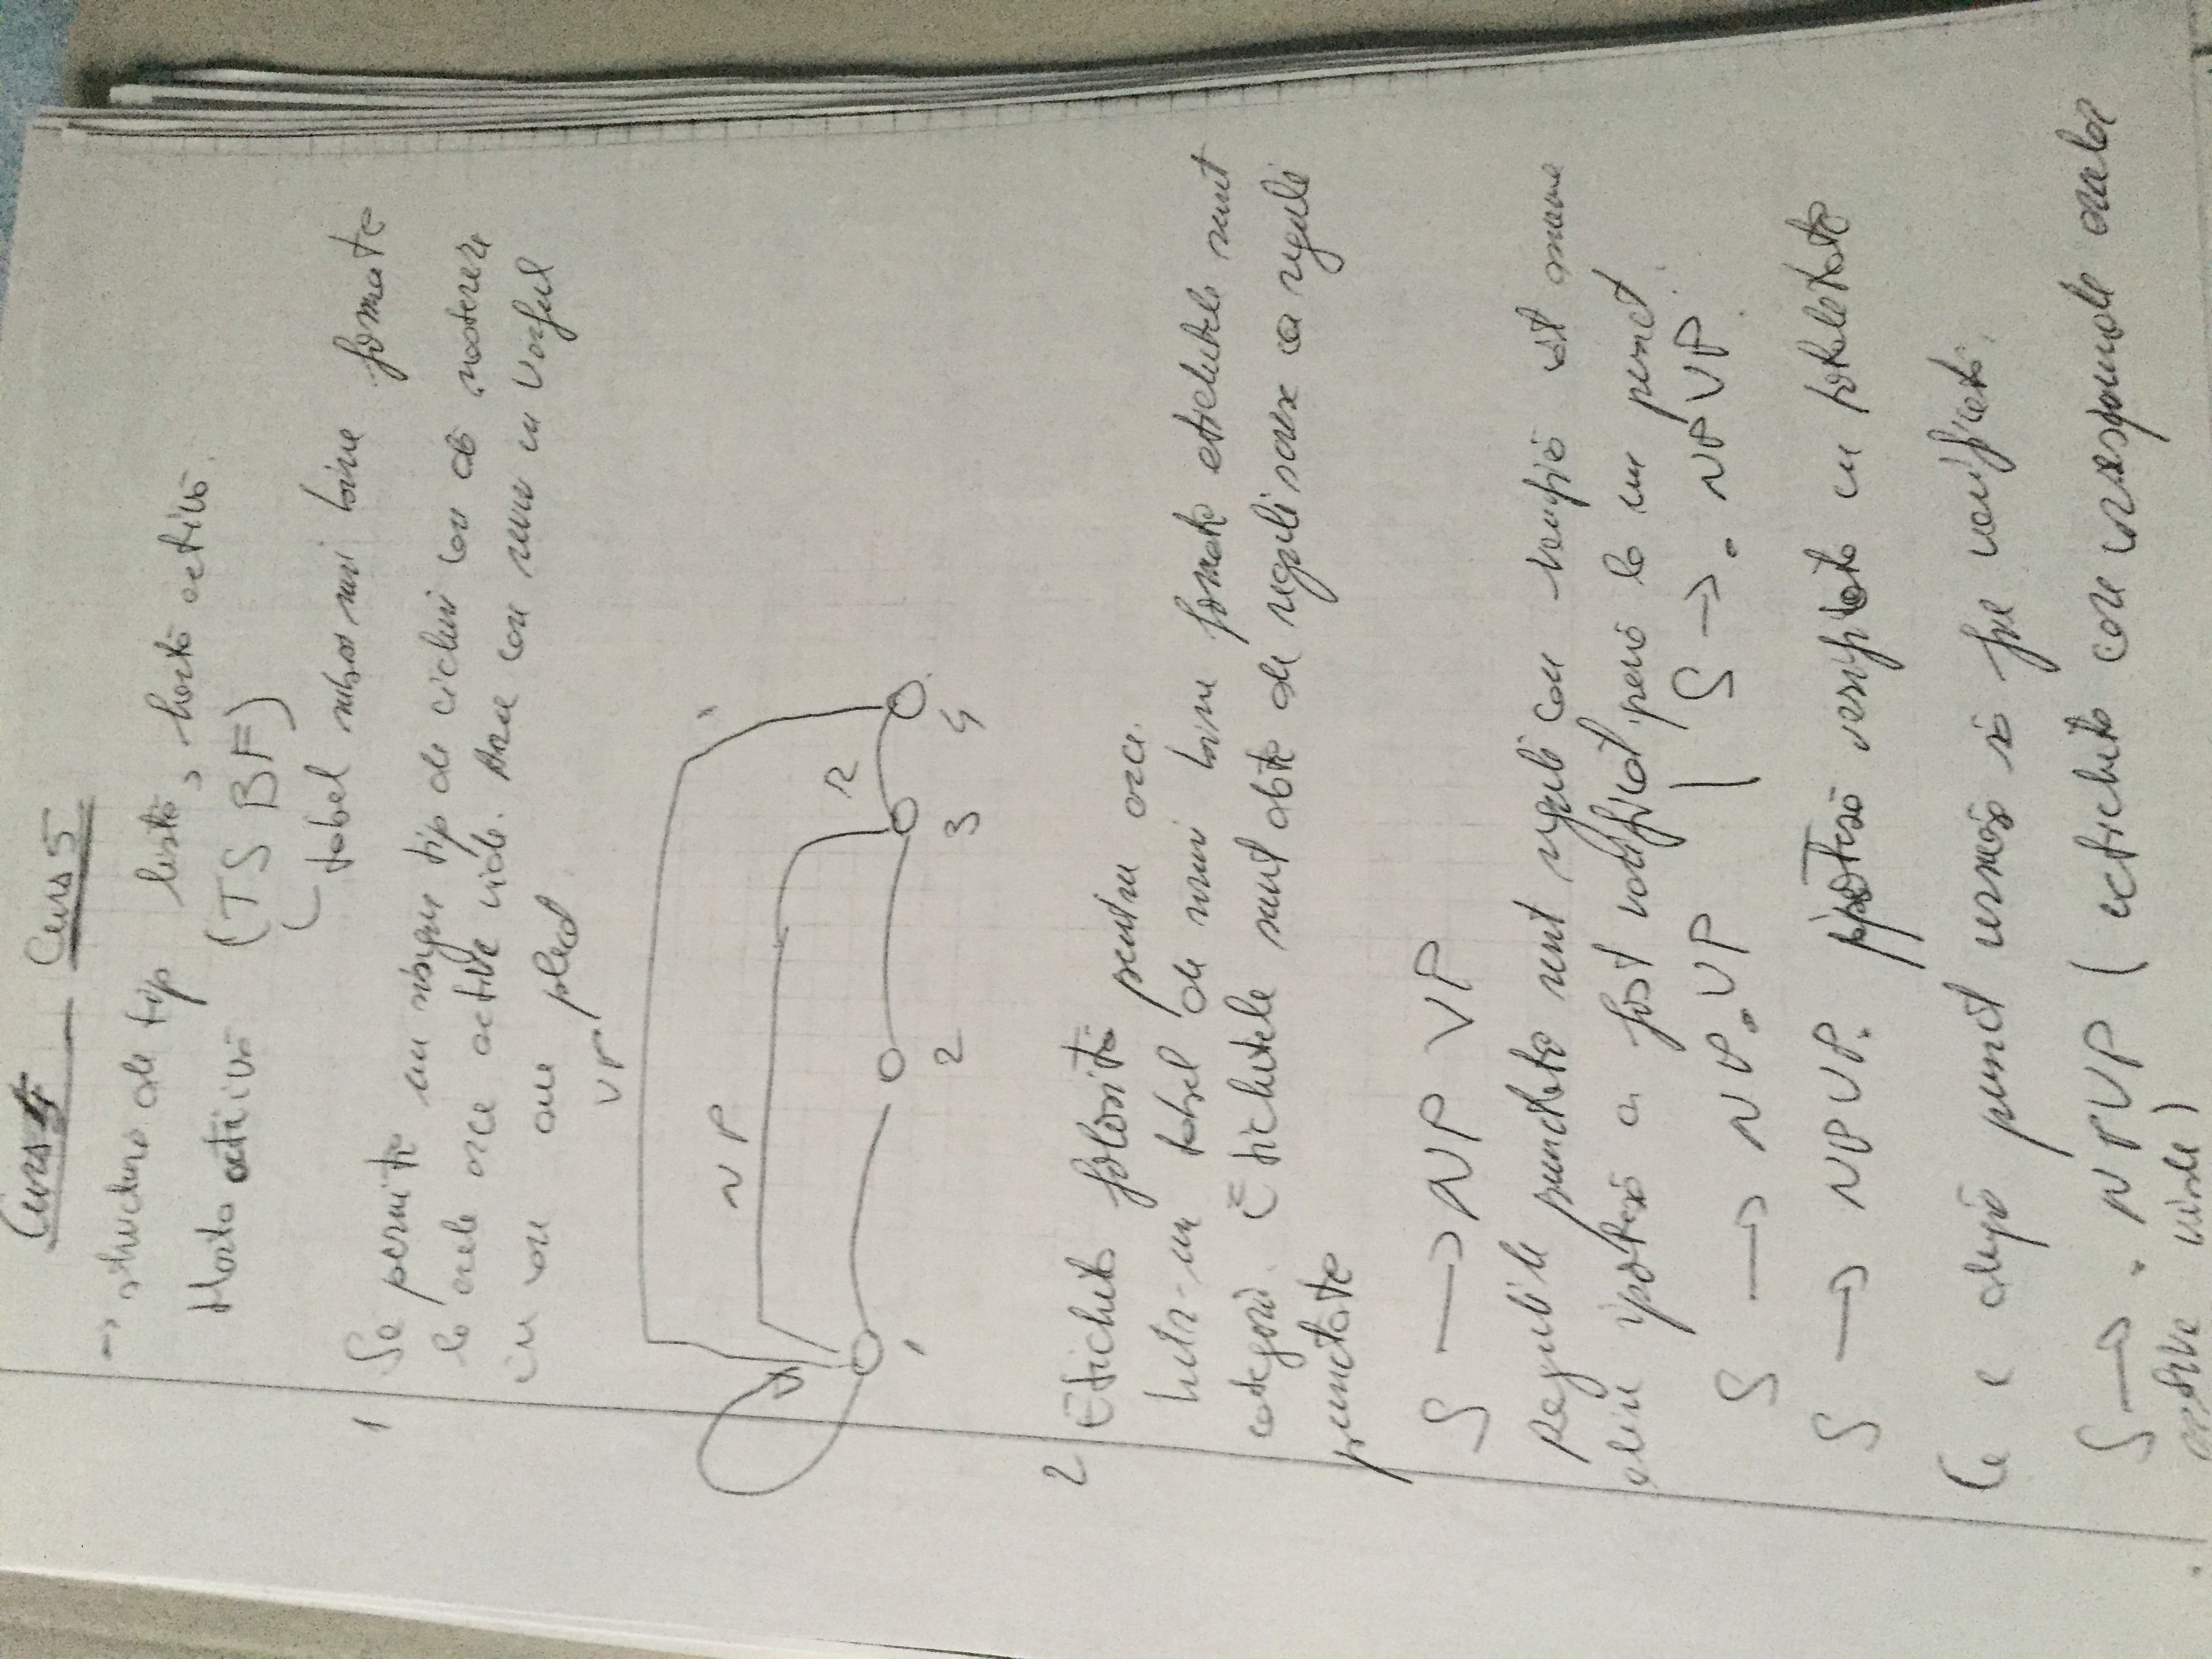 Curs 4 Curs 5
→ structura de tip listă, hartă activă.
Harta activă (TS BF)
tabel subșiruri bine formate
1 Se permite un singur tip de cicluri care dă naștere
la acele arce active vide. Arce care revin in vârful
in care au plecat
VP
NP
2
1 2 3 4
2 Eticheta folosită pentru arce.
Intr-un tabel de siruri bine formate etichetele sunt
categorii. Etichetele sunt date de reguli scrise ca reguli
punctate
S → NP VP
Regulile punctate sunt reguli care verifică cât anume
din ipoteză a fost verificat până la un punct.
S → NP . VP | S → . NP VP
S → NP VP. ipoteză verificata in totalitate
Ce e după punct urmează să fie verificată.
S → . NP VP ( etichita care corespunde arcelor
active vide )